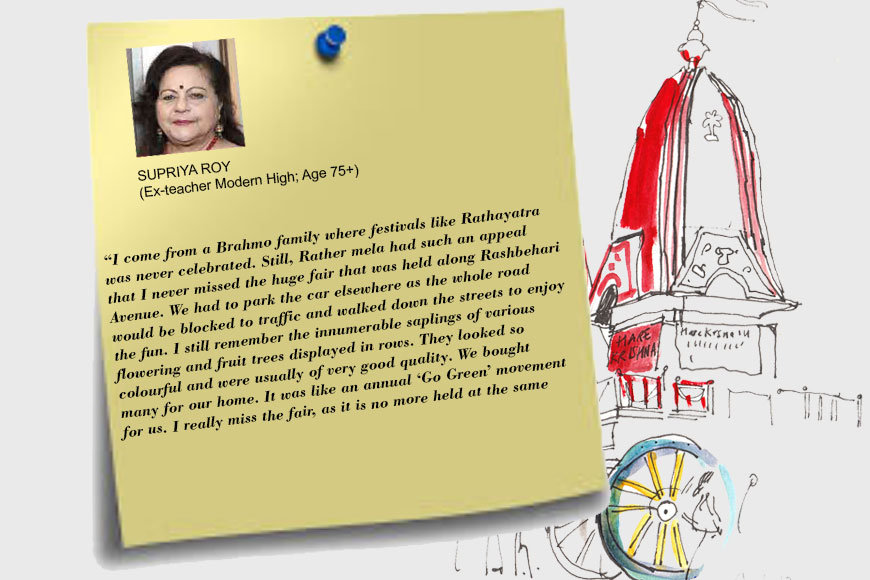 SUPRIYA ROY
(Ex-teacher Modern High; Age 75+)
“I come from a Brahmo family where festivals like Rathayatra
was never celebrated. Still, Rather mela had such an appeal
that I never missed the huge fair that was held along Rashbehari
Avenue. We had to park the car elsewhere as the whole road
would be blocked to traffic and walked down the streets to enjoy
the fun. I still remember the innumerable saplings of various
flowering and fruit trees displayed in rows. They looked so
colourful and were usually of very good quality. We bought
many for our home. It was like an annual ‘Go Green’ movement
for us. I really miss the fair, as it is no more held at the same
HARE
KRISHNA